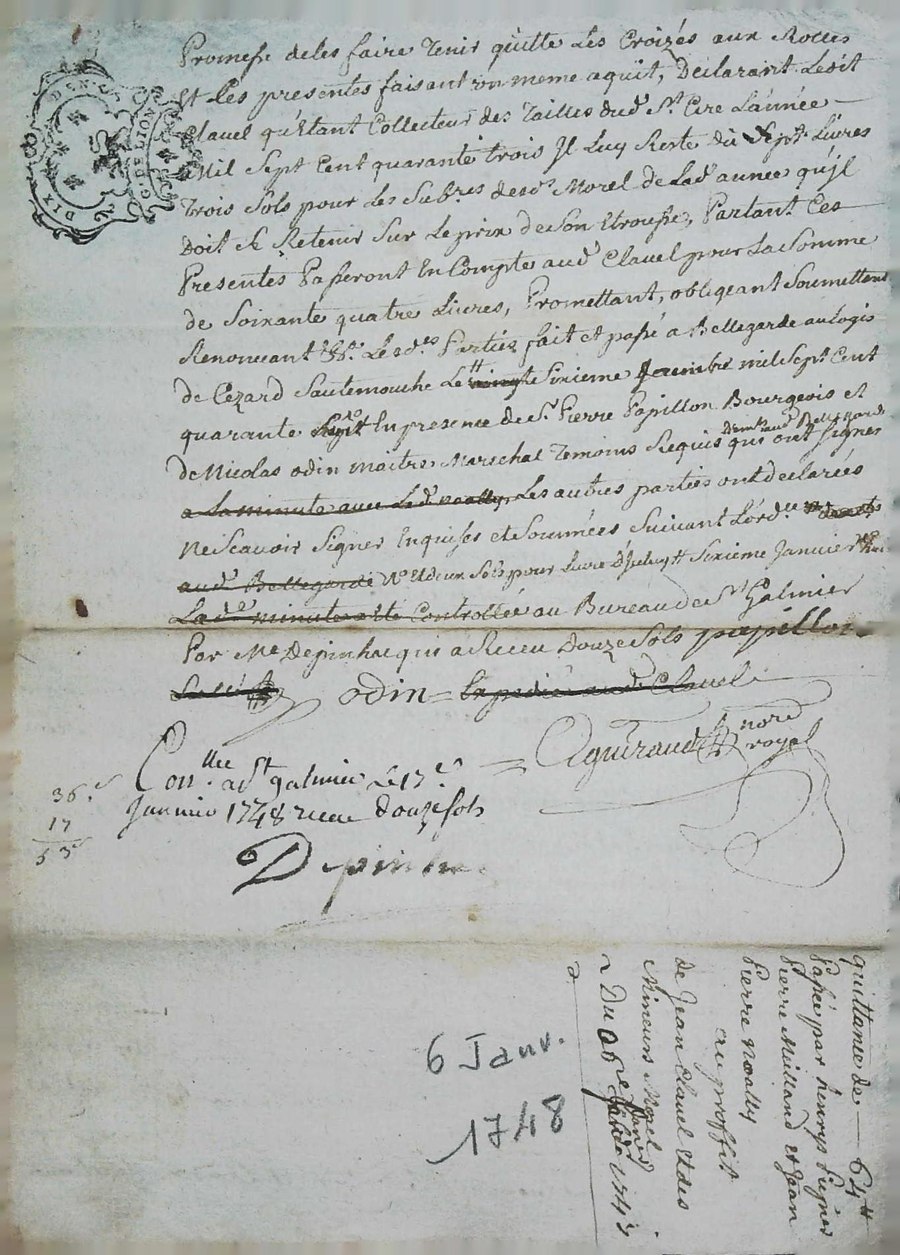 Promesse de les faire Tenir quitte Les Croizés aux Rolles
Et Les presentes faisant un meme aquit, Declarant Ledit
Clavel qu'Etant Collecteur des Tailles dud. St. Cire L'année
Mil Sept Cent quarante trois Il Luy Reste dû Sept Livres
Trois Sols pour Les Subres. de Morel de Lad. année qu'il
Doit Se Retenir Sur Le prix de Son Etrousse, Partant Ces
Presentes Passeront En Compte aud. Clavel pour La Somme
de Soixante quatre Livres, Promettant, obligeant Soumettant
Renonceant Les des. Parties fait et passé a Bellegarde au Logis
de Cezard Sautemouche Le Sixieme mil Sept Cent
quarante En presence de Sr. Pierre Papillon Bourgeois et
de Nicolas odin maitre Mareschal Temoins Requis demt. aud. Bellegarde qui ont Signés
a La minute avec Led. noally, Les autres parties ont declarées
ne Scavoir Signer Enquises et Sommées Suivant L'ord.
aud. Bellegarde et deux Sols pour Livre Sixieme Janvier
Lad. minute a ete Controllée au Bureau de St. Galmier
Par Me. Depinhac qui a Receu Douze Sols papillon
odin Expedié aud. Clavel
Aguiraud nore. royal
Conllee. a St. galmier Le 17e
Janvier 1748 receu douze sols
36
17
53
Depinhac
quittance de 64tt
Passée par henrys Signer
Pierre Meilland et Jean
Pierre noally
au proffit
de Jean Clavel Et des
Mineurs Morel
Du 06e Janvier 1748
6 Janv.
1748
DIX DEN.
G. DE LION